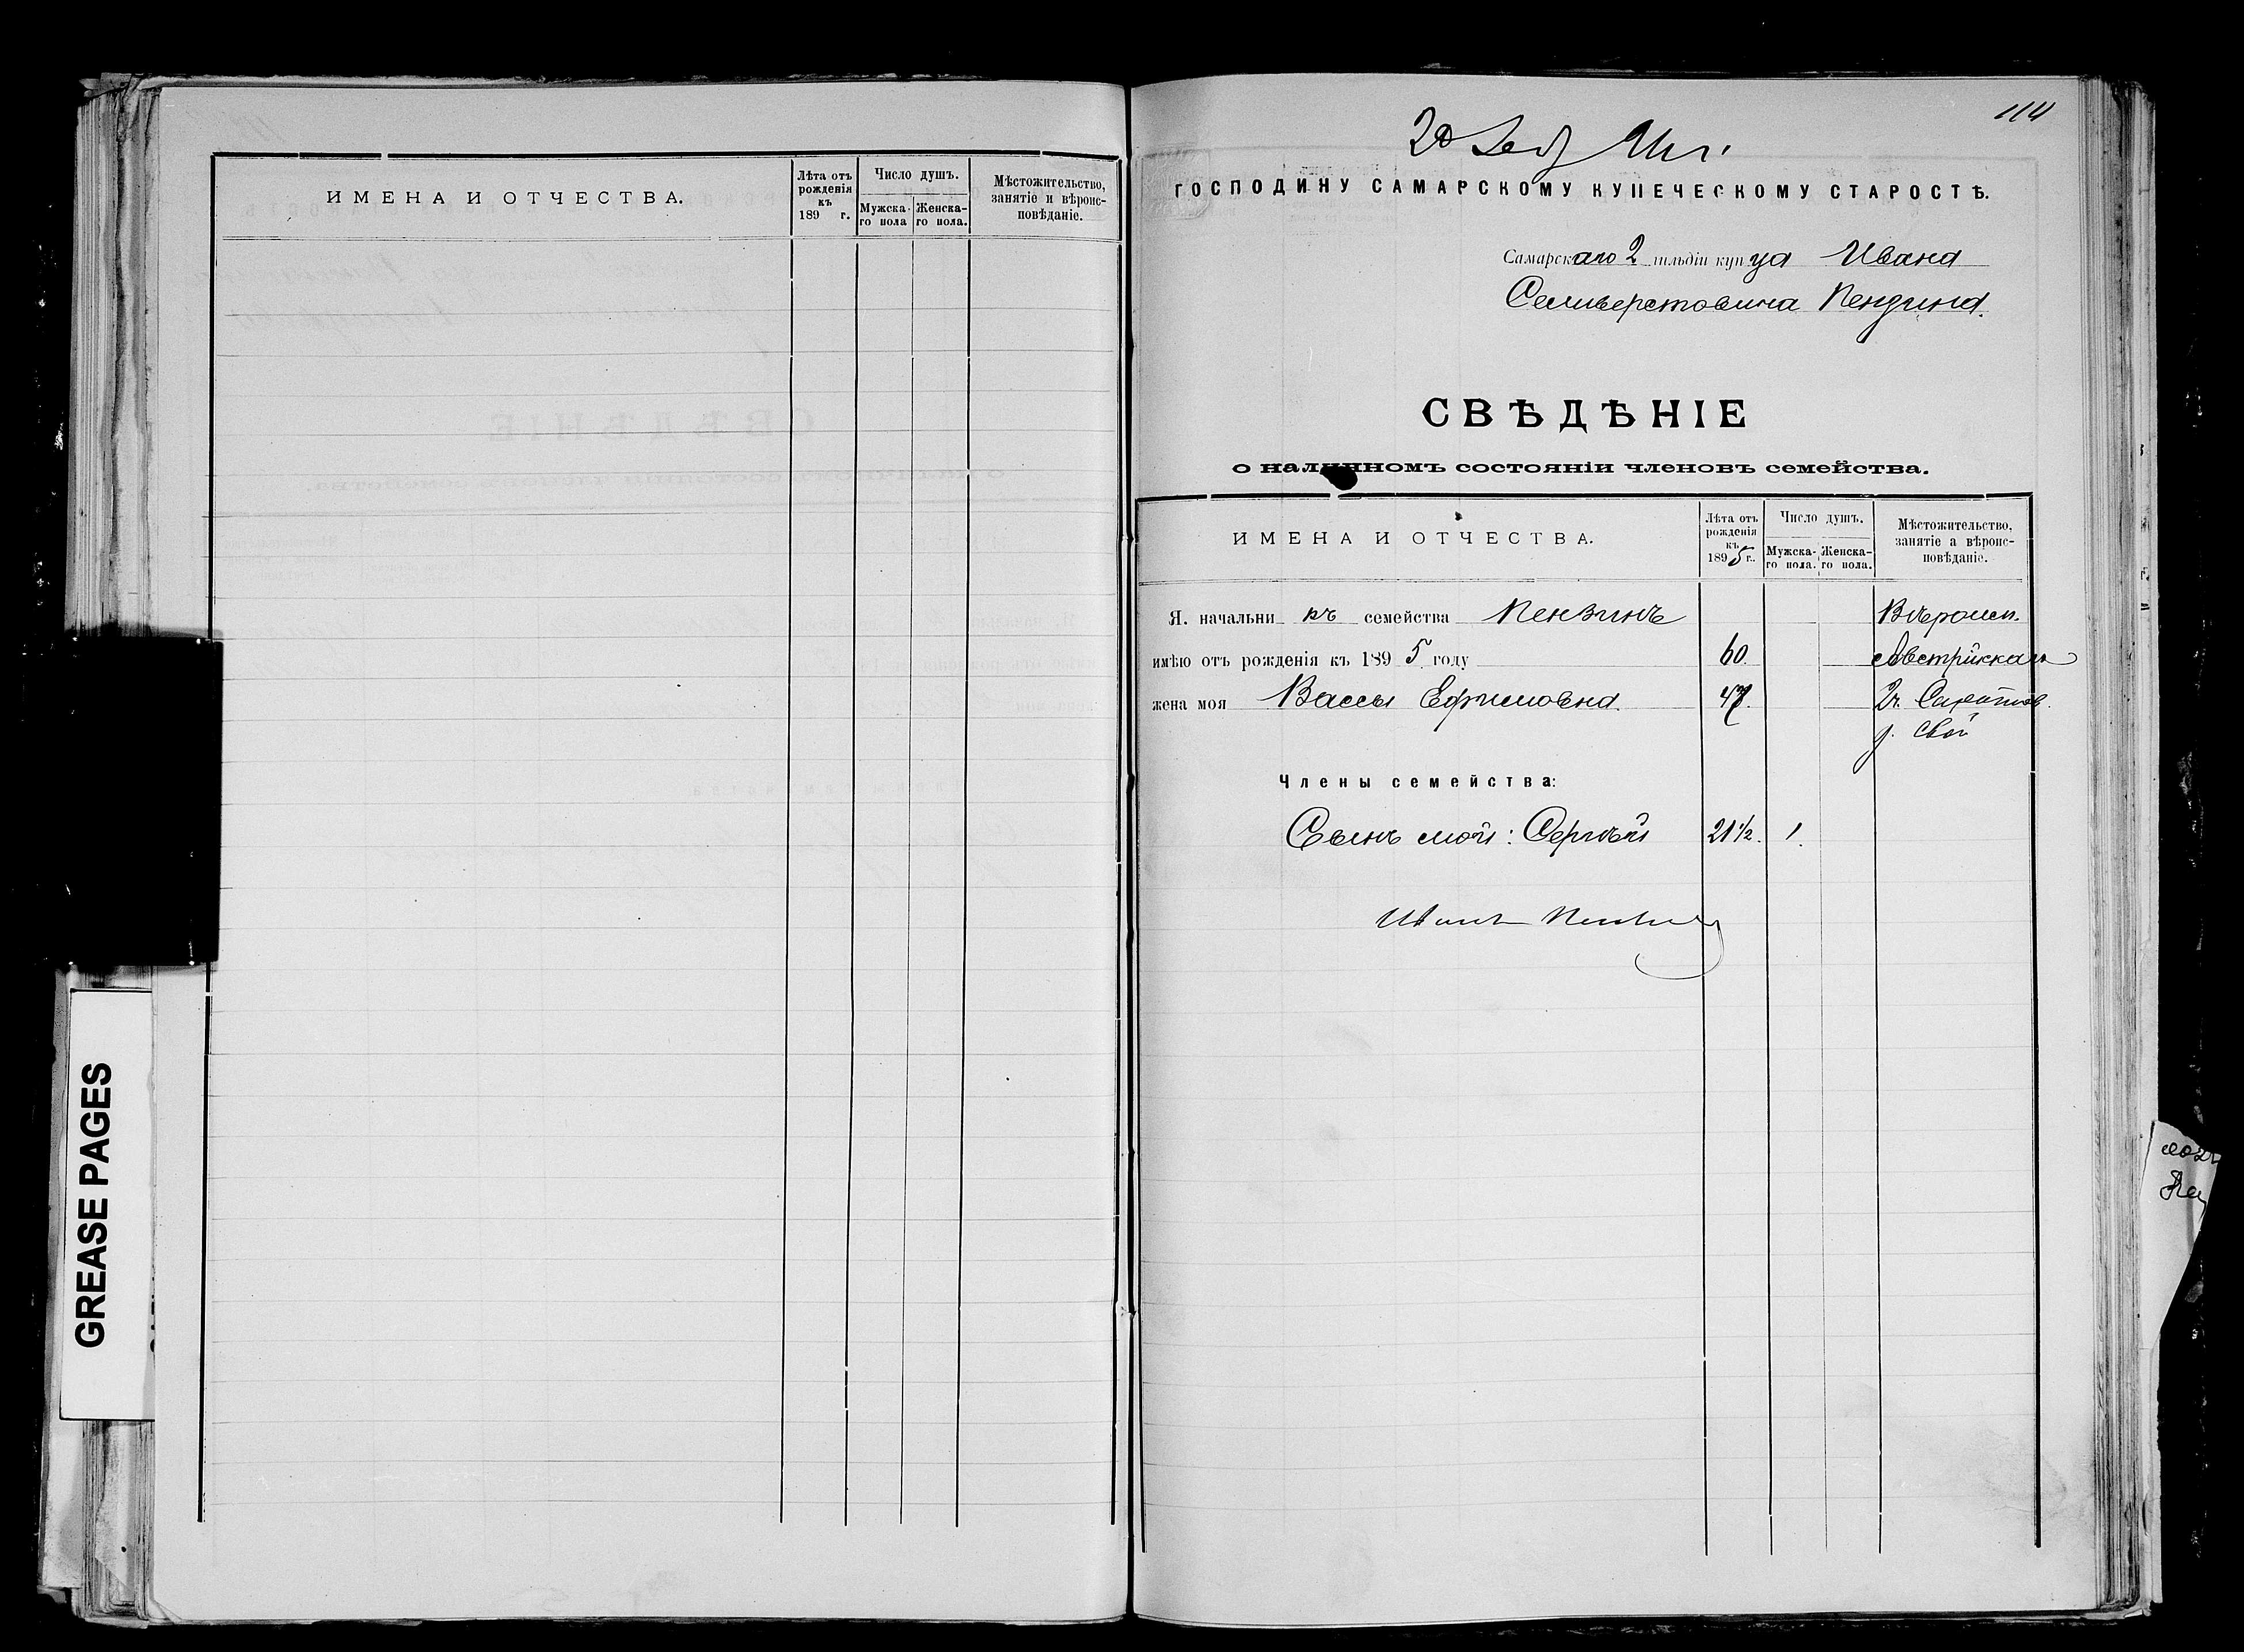 ИМЕНА И ОТЧЕСТВА.
Лѣта отъ рожденія къ 189 г.
Число душъ.
Мужска-го пола
Женска-го пола.
Мѣстожительство, занятіе и вѣроис-повѣданіе.
GREASE PAGES
114
ГОСПОДИНУ САМАРСКОМУ КУПЕЧЕСКОМУ СТАРОСТѢ.
Самарскаго 2 гильдіи купца Ивана
Селиверстовича Пензина.
СВѢДѢНІЕ
о наличномъ состояніи членовъ семейства.
ИМЕНА И ОТЧЕСТВА.
Лѣта отъ рожденія къ 1895 г.
Число душъ.
Мужска-го пола.
Женска-го пола.
Мѣстожительство, занятіе а вѣроис-повѣданіе.
Я. начальникъ семейства Пензинъ Вѣроисп.
имѣю отъ рожденія къ 1895 году 60. Австрійскаго
жена моя Васса Ефимовна. 47.
д. свой
Члены семейства:
Сынъ мой: Сергѣй 21 1/2. 1.
Иванъ Пензинъ